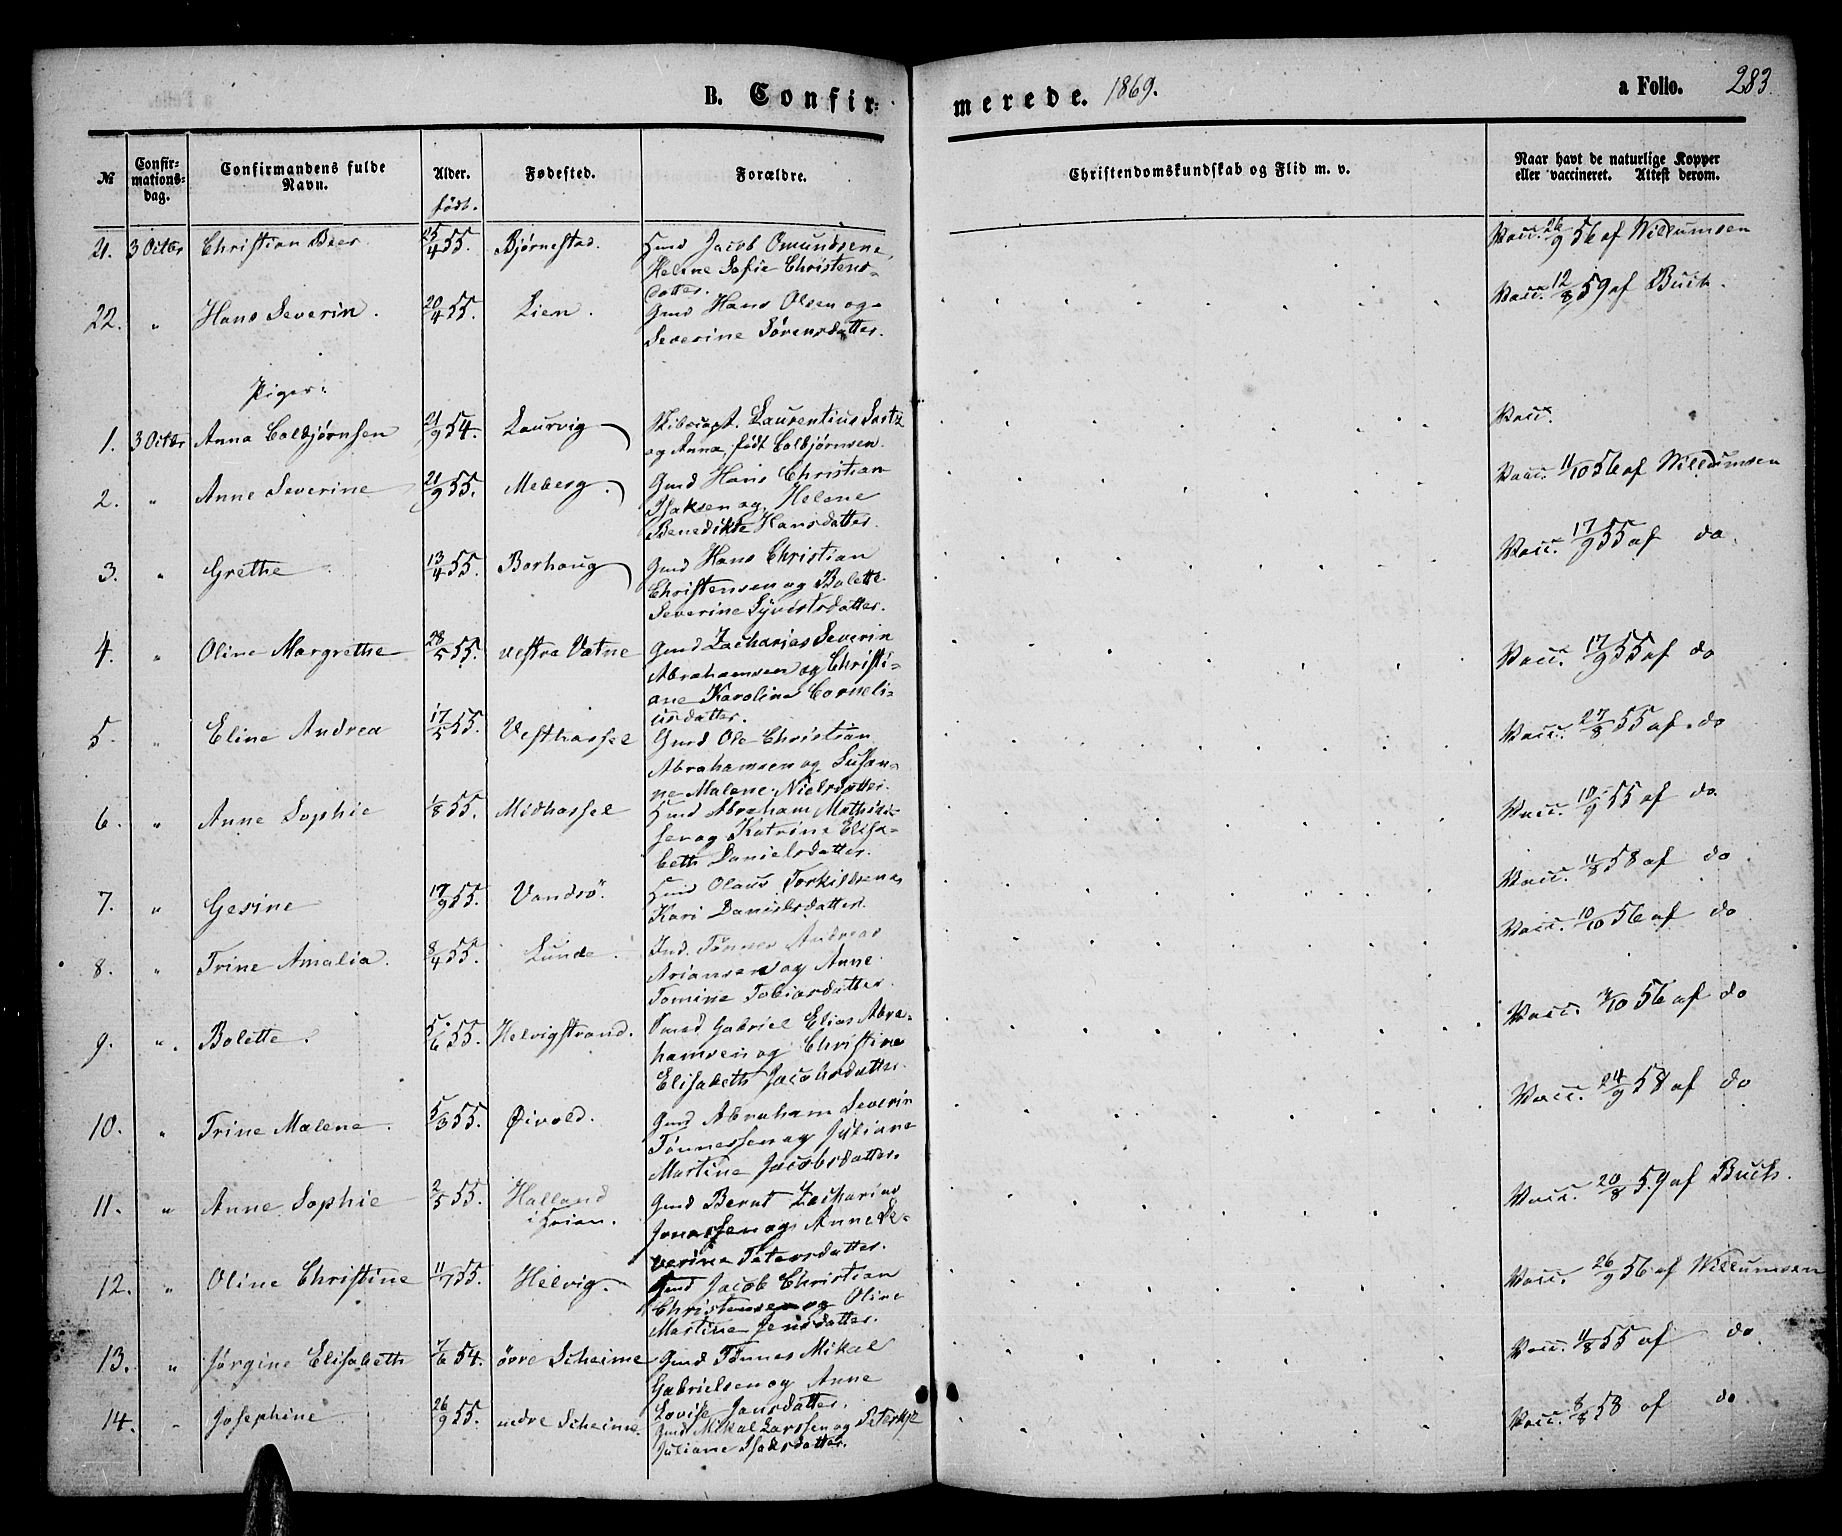 B. Confir-
merede. 1869.
a Folio. 283.
№
Confir-
mations-
dag.
Confirmandens fulde
Navn.
Alder.
født.
Fødested.
Forældre.
Christendomskundskab og Flid m. v.
Naar havt de naturlige Kopper
eller vaccineret. Attest derom.
21. 3 Octbr Christian Beer. 25/4 55. Bjørnestad. Hmd Jacob Omundsen,
Helene Sofie Christens-
datter. Vacc. 26/9 56 af Willumsen
22. " Hans Severin. 20/4 55. Lien. Gmd Hans Olsen og
Severine Sørensdatter. Vacc. 12/8 59 af Buch.
Piger:
1. 3 Octbr Anna Colbjørnsen 21/9 54. Laurvig Skibscapt. Laurentius
og Anna, født Colbjørnsen. Vacc.
2. " Anne Severine 21/9 55. Meberg. Gmd Hans Christian
Isaksen og Helene
Benedikte Hansdatter. Vacc. 11/10 56 af Willumsen
3. " Grethe 13/4 55. Borhaug Gmd Hans Christian
Christensen og Bolette
Severine Syvertsdatter. Vacc. 17/9 55 af do.
4. " Oline Margrethe 28/5 55. vestre Vatne Gmd Zacharias Severin
Abrahamsen og Christi-
ane Karoline Corneli-
usdatter. Vacc. 17/9 55 af do
5. " Eline Andrea 17/5 55. Vesthassel Gmd Ole Christian
Abrahamsen og Susan-
ne Malene Nielsdatter. Vacc. 27/8 55 af do
6. " Anne Sophie 1/8 55. Midhassel Hmd Abraham Mathia-
sen og Katrine Elisa-
beth Danielsdatter. Vacc. 10/9 55 af do.
7. " Gesine 17/9 55. Vandsö. Hmd Olaus Torkildsen,
Kari Danielsdatter. Vacc. 11/8 58 af do.
8. " Trine Amalia. 8/4 55. Lunde. Ind. Tønnes Andreas
Ariansen og Anne
Tomine Tobiasdatter. Vacc. 10/10 56 af do
9. " Bolette. 5/6 55. Helvigstrand. Smed Gabriel Elias Abra-
hamsen og Christine
Elisabeth Jacobsdatter. Vacc. /10 56 af do
10. " Trine Malene. 5/3 55. Øivold. Gmd Abraham Severin
Tønnessen og Juliane
Martine Jacobsdatter. Vacc. 24/9 58 af do
11. " Anne Sophie 2/5 55. Halland
i Gmd Bernt Zacharias
Jonassen og Anne Se-
verine Petersdatter. Vacc. 20/8 59 af Buch.
12. " Oline Christine 11/7 55. Helvig. Gmd Jacob Christian
Christensen og Oline
Martine Jensdatter. Vacc. 26/9 56 af Willumsen
13. " Jørgine Elisabeth /6 54. øvre Scheime Gmd Tønnes Mikal
Gabrielsen og Anne
Lovise Jansdatter. Vacc. 11/8 55 af do
14. " Josephine 26/9 55. nedre Scheime. Gmd Mikal Larssen og
Juliane Isaksdatter. Vacc. 8/8 58 af do